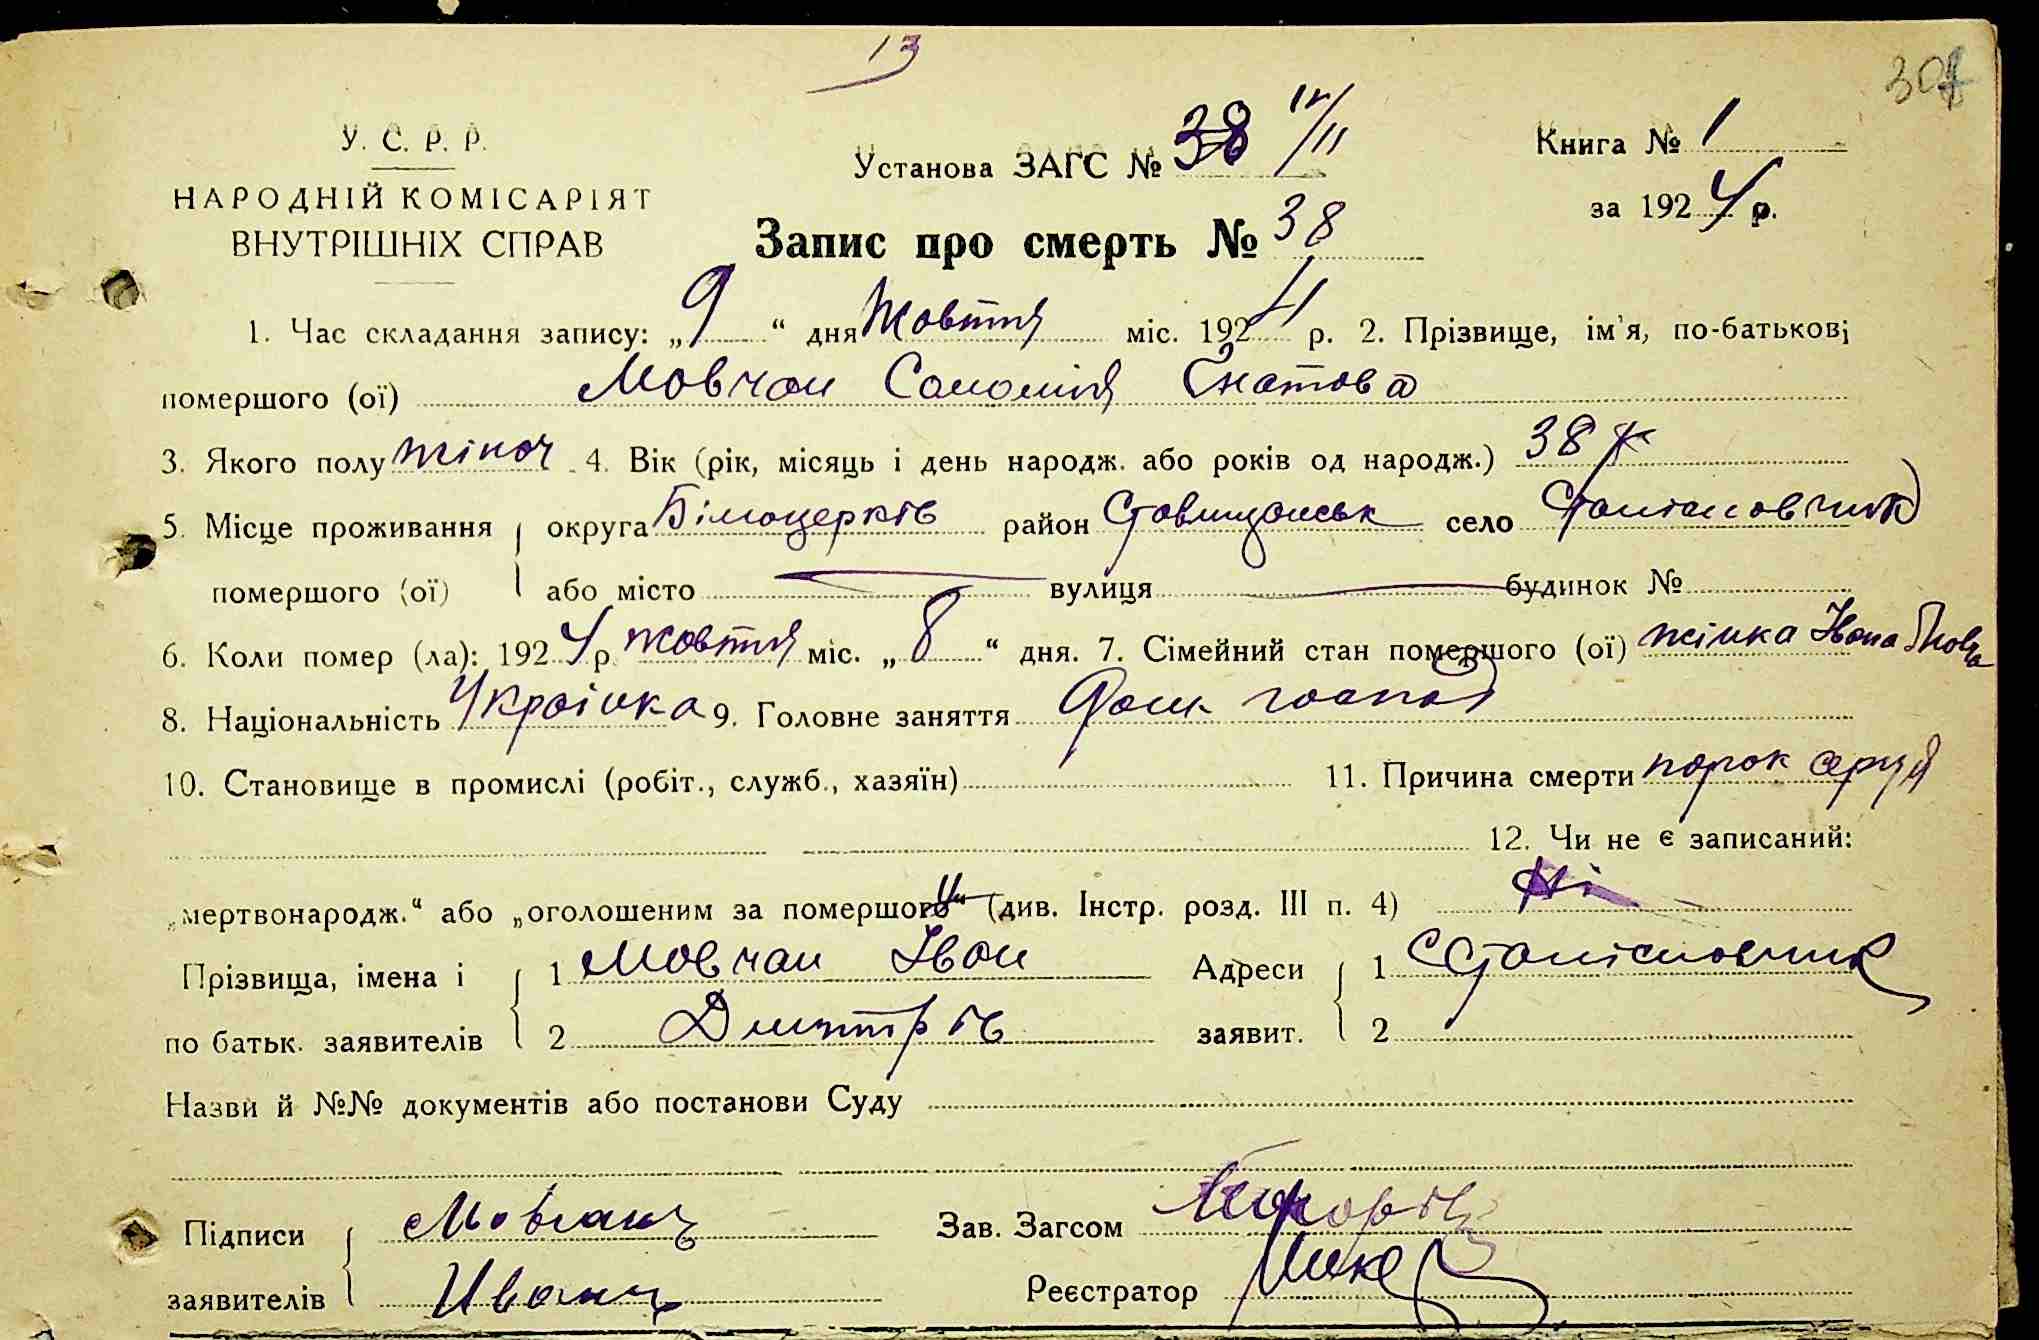 13
У. С. Р. Р.
НАРОДНІЙ КОМІСАРІЯТ
ВНУТРІШНІХ СПРАВ
Установа ЗАГС № 38 11
Книга № 1
за 1924 р.
Запис про смерть № 38
1. Час складання запису: „9“ дня Жовтня міс. 1924 р. 2. Прізвище, ім'я, по-батькові
помершого (ої) Мовчан Саломія Гнатова
3. Якого полу жіноч 4. Вік (рік, місяць і день народж. або років од народж.) 38 р
5. Місце проживання округа Білоцерків район Ставищанськ село Станіславчик
помершого (ої) або місто вулиця будинок №
6. Коли помер (ла): 1924 р жовтня міс. „8“ дня. 7. Сімейний стан помершого (ої) жінка Івана
8. Національність Українка 9. Головне заняття господ
10. Становище в промислі (робіт., служб., хазяїн) 11. Причина смерти порок серця
12. Чи не є записаний:
„мертвонародж.“ або „оголошеним за помершого“ (див. Інстр. розд. III п. 4) Ні
Прізвища, імена і 1 Мовчан Іван Адреси 1 Станіславчик
по батьк. заявителів 2 Дмитрів заявит. 2
Назви й №№ документів або постанови Суду
Підписи Мовчанъ Зав. Загсом
заявителів Иванъ Реєстратор